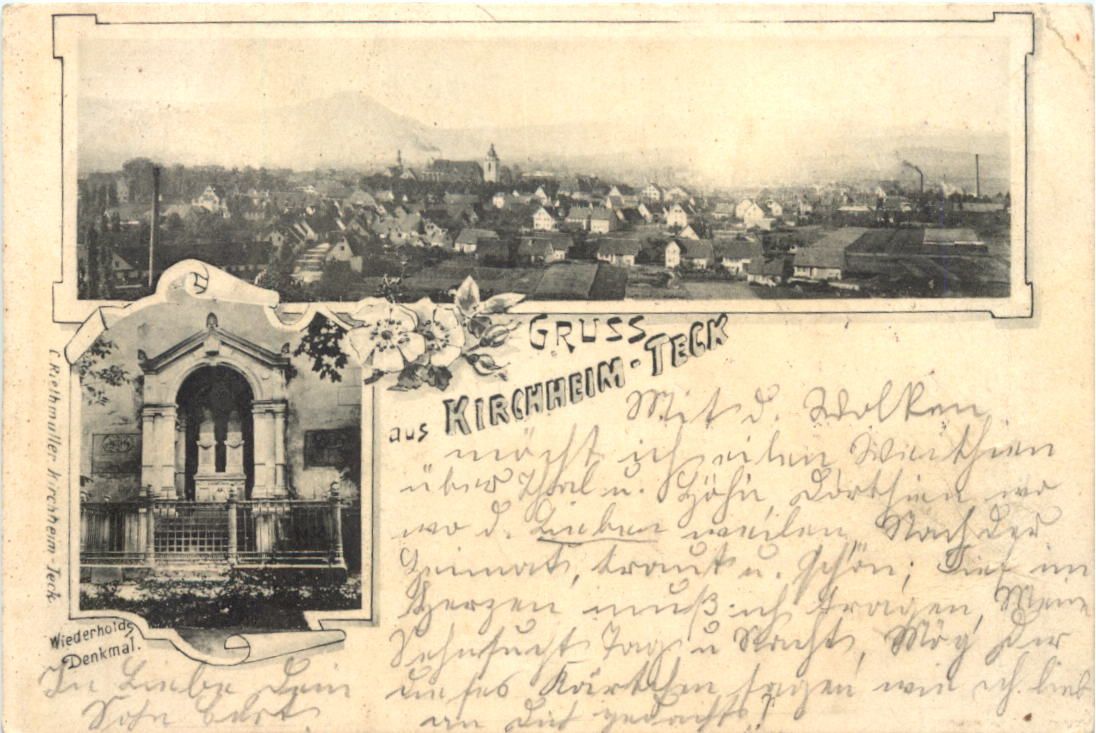 GRUSS
aus KIRCHHEIM-TECK
C. Riethmüller Kirchheim-Teck.
Wiederholds
Denkmal.
Mit d. Wolken
möcht ich eilen
über Thal u. Höhn Dorthin wo
wo d. Lieben weilen, Nach der
Heimat, traut u. schön; Tief im
Herzen muß ich tragen, Meine
Sehnsucht Tag u Nacht, Mög Dir
dieses Kärtchen sagen wie ich lieb
an Dich gedacht!
In Liebe Dein